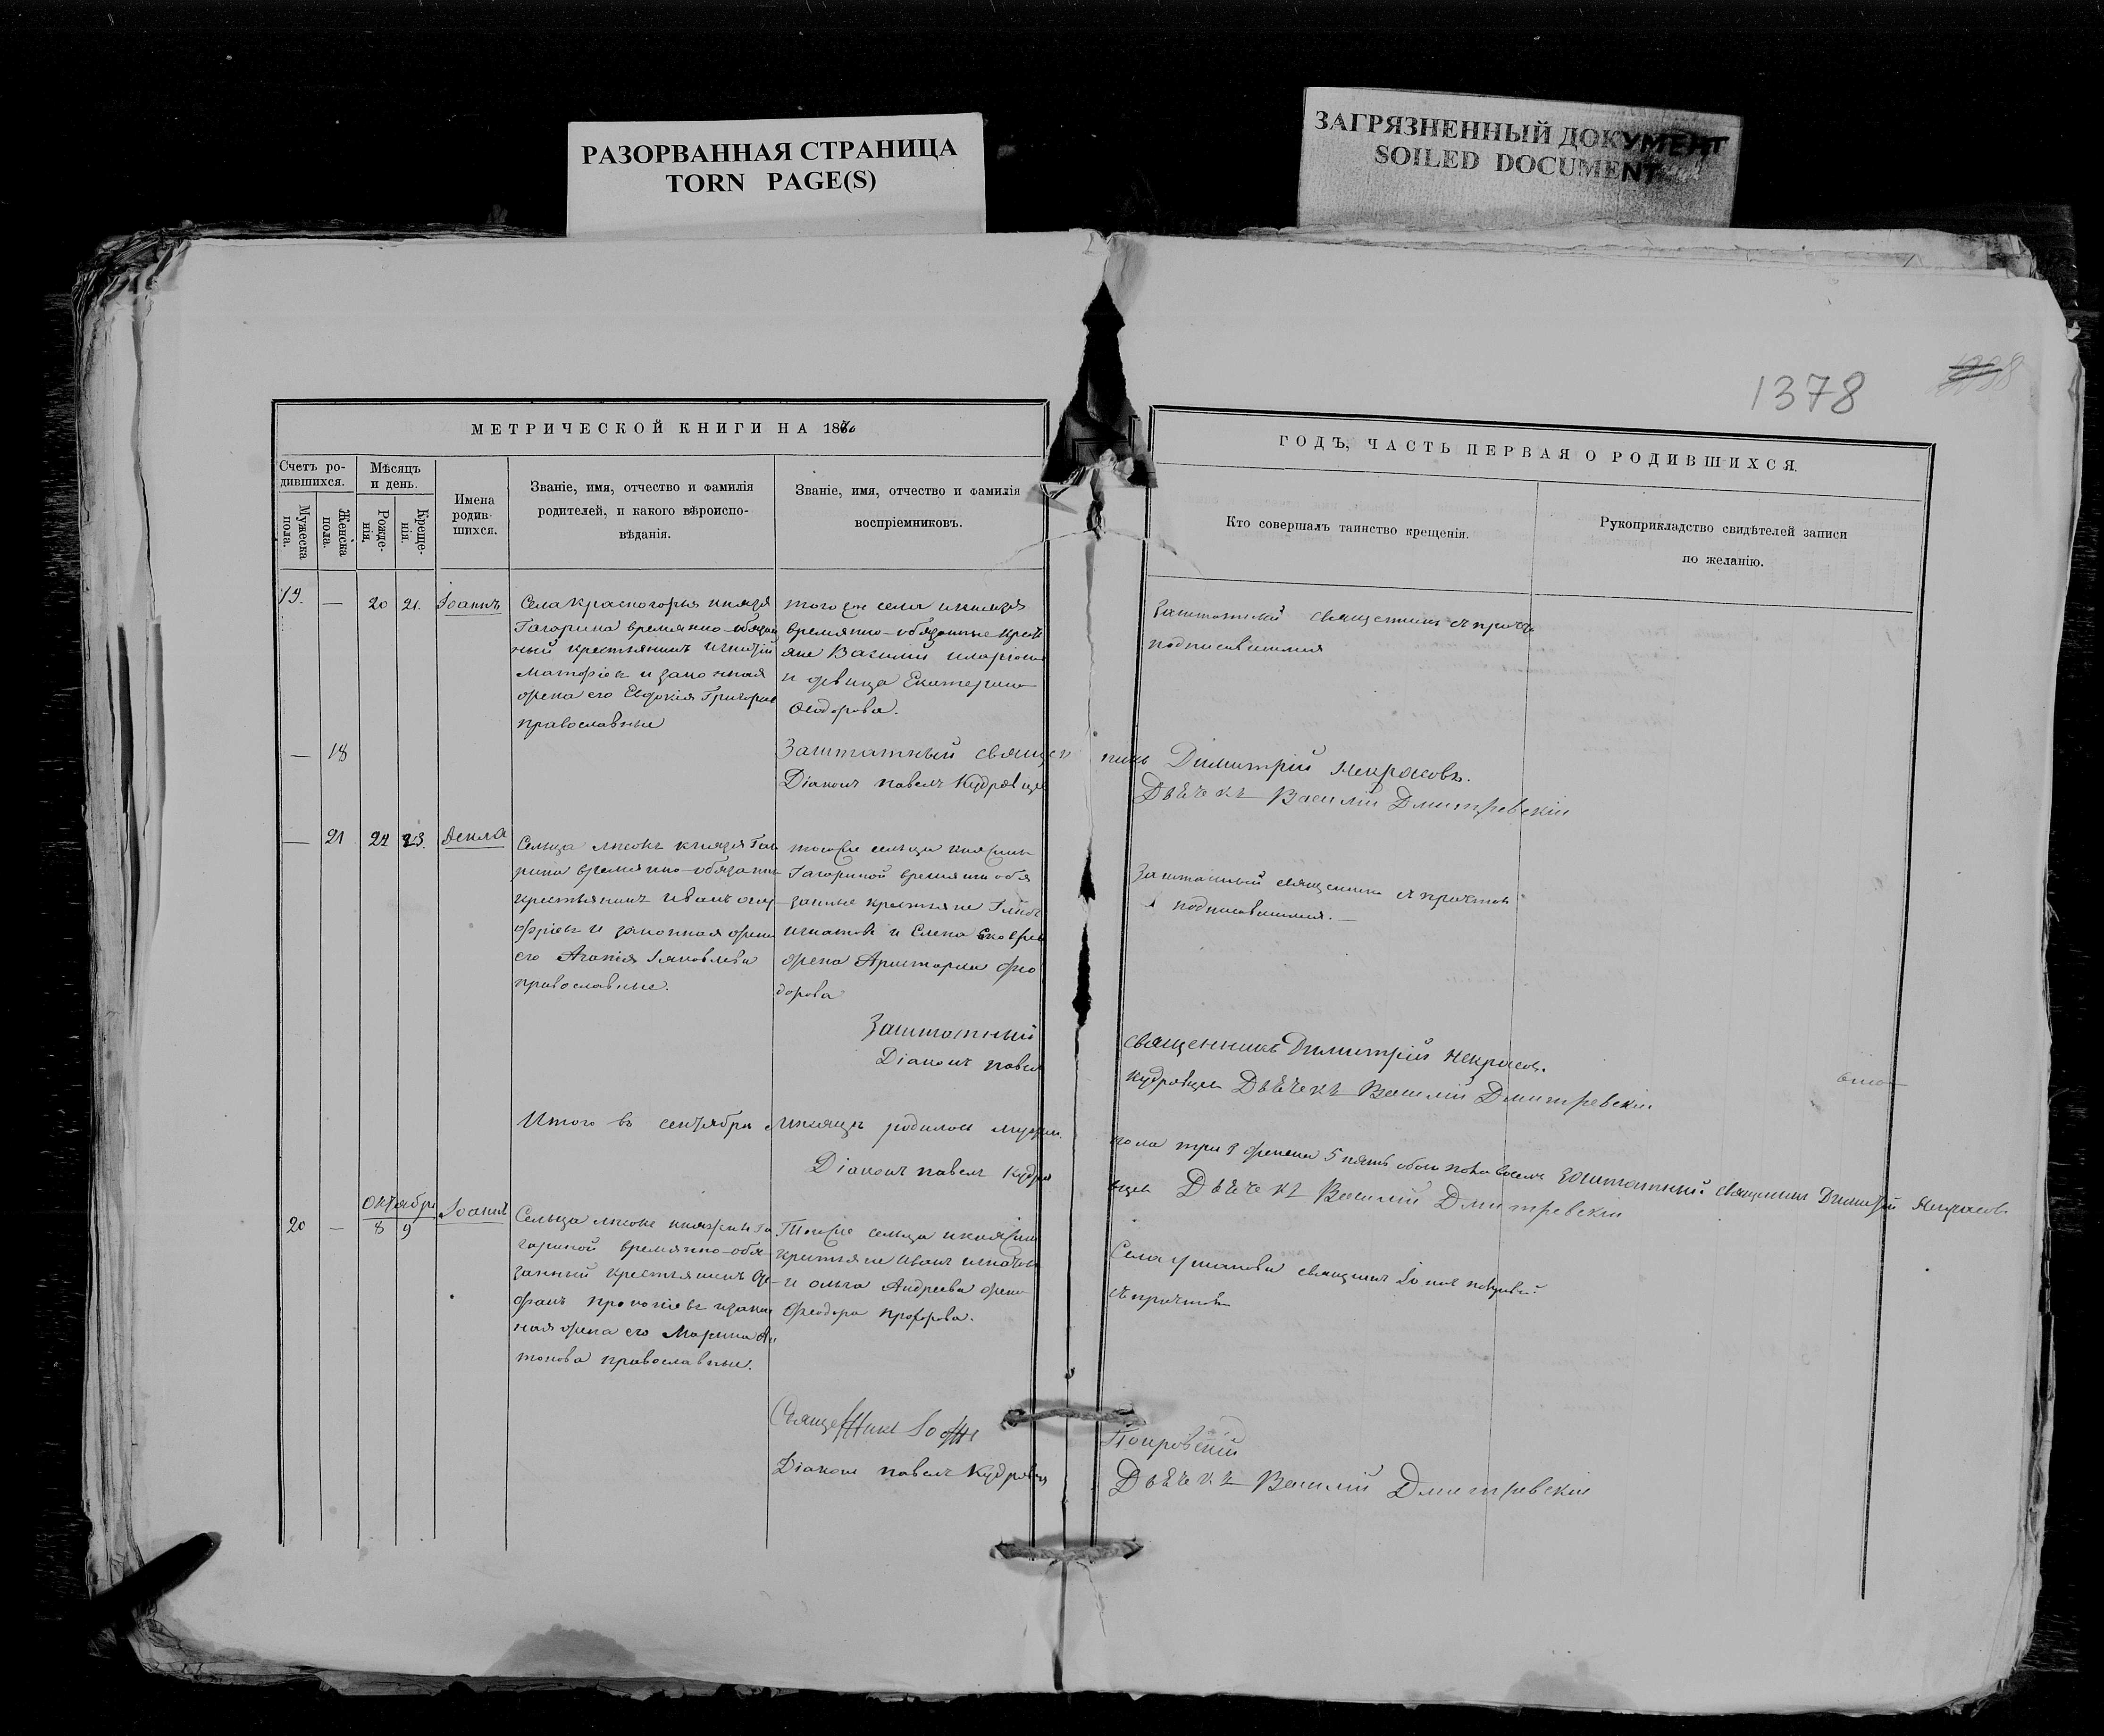 РАЗОРВАННАЯ СТРАНИЦА
TORN PAGE(S)
ЗАГРЯЗНЕННЫЙ ДОКУМЕНТ
SOILED DOCUMENT
1378
МЕТРИЧЕСКОЙ КНИГИ НА 18
ГОДЪ, ЧАСТЬ ПЕРВАЯ О РОДИВШИХСЯ.
Счетъ ро-
дившихся.
Мужеска
пола.
Женска
пола.
Мѣсяцъ
и день.
Рожде-
нія.
Креще-
нія.
Имена
родив-
шихся.
Званіе, имя, отчество и фамилія
родителей, и какого вѣроиспо-
вѣданія.
Званіе, имя, отчество и фамилія
воспріемниковъ.
Кто совершалъ таинство крещенія.
Рукоприкладство свидѣтелей записи
по желанію.
19. — 20 21. Іоаннъ
Села Красногорья князя
Гагарина временно-обязан
ный крестьянинъ Игнатій
и законная
жена его Евдокія Григорьев
православные
того же села и князя
временно-обязанные крест
яне Василій
и девица Екатерина
Феодорова.
Заштатный священникъ съ причт
подписавшимся
— 18
Заштатный священ
никъ Димитрій Некрасовъ.
Діаконъ Павелъ Кудрявце
Дьячекъ Василій Дмитревскій
— 21 22 23. Фекла
Сельца князя Гага
рина временно-обязанн
крестьянинъ Иванъ Ону
фріевъ и законная жена
его Агапія Іаковлева
православные.
тогоже сельца княжны
Гагариной временно обя
занные крестьяне
Игнатовъ и Елена
жена Аристарха Фео
дорова
Заштатный священникъ съ причтомъ
подписавшимся.
Заштатный
священникъ Димитрій Некрасовъ.
Діаконъ Павелъ
Кудрявцев Дьячекъ Василій Дмитревскій
Итого въ сентябрѣ месяцѣ родилось мужеск.
пола три 3 женска 5 пять обоего пола восемь Заштатный священникъ Димитрій Некрасовъ
Діаконъ Павелъ Кудря
вцевъ Дьячекъ Василій Дмитревскій
Октябрь
20 — 8 9 Іоаннъ
Сельца княжны Га
гариной временно-обя
занный крестьянинъ
Прокопіевъ и закон
ная жена его Марина Ан
тонова православные.
Тогоже сельца и княжны
крестьяне Иванъ Игнатовъ
и Ольга Андреева жена
Феодора
Села священникъ Покровскій
съ причтомъ
Священникъ Іоаннъ
Покровскій
Діаконъ Павелъ Кудрявцев
Дьячекъ Василій Дмитревскій